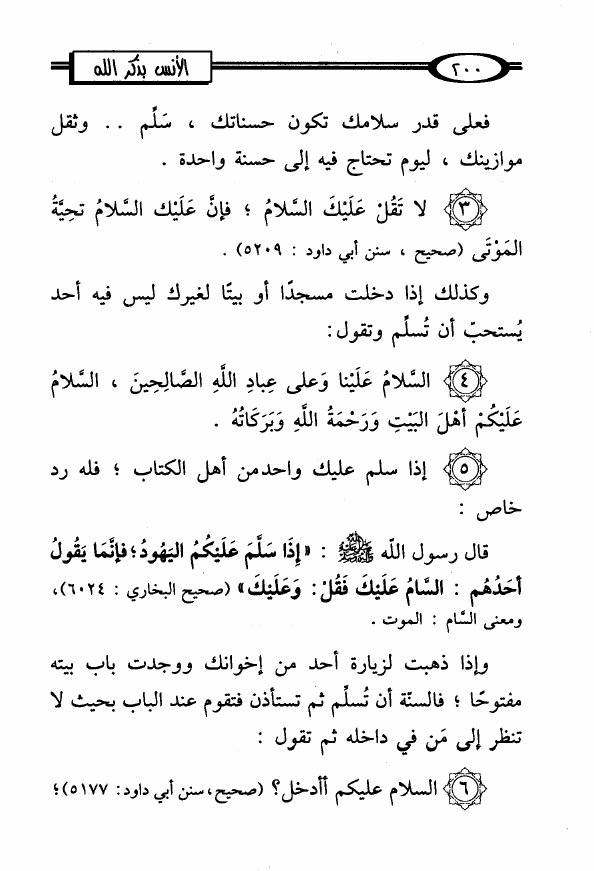 ٢٠٠ الأنس بذكر الله
فعلى قدر سلامك تكون حسناتك ، سَلِّم .. وثقل
موازينك ، ليوم تحتاج فيه إلى حسنة واحدة .
٣ لا تَقُلْ عَلَيْكَ السَّلامُ ؛ فإنَّ عَلَيْك السَّلامُ تحيَّةُ
المَوْتَى (صحيح ، سنن أبي داود : ٥٢٠٩) .
وكذلك إذا دخلت مسجدًا أو بيتًا لغيرك ليس فيه أحد
يُستحبّ أن تُسلِّم وتقول:
٤ السَّلامُ عَلَيْنا وَعلى عِبادِ اللَّهِ الصَّالِحِينَ ، السَّلامُ
عَلَيْكُمْ أهْلَ البَيْتِ وَرَحْمَةُ اللَّهِ وَبَرَكَاتُهُ .
٥ إذا سلم عليك واحدمن أهل الكتاب ؛ فله رد
خاص :
قال رسول اللّه ﷺ : «إِذَا سَلَّمَ عَلَيْكُمُ اليَهُودُ؛ فإنَّمَا يَقُولُ
أحَدُهُم : السَّامُ عَلَيْكَ فَقُلْ: وَعَلَيْكَ» (صحيح البخاري : ٦٠٢٤)،
ومعنى السَّام : الموت .
وإذا ذهبت لزيارة أحد من إخوانك ووجدت باب بيته
مفتوحًا ؛ فالسنّة أن تُسلِّم ثم تستأذن فتقوم عند الباب بحيث لا
تنظر إلى مَن في داخله ثم تقول :
٦ السلام عليكم أأدخل؟ (صحيح، سنن أبي داود: ٥١٧٧)؛